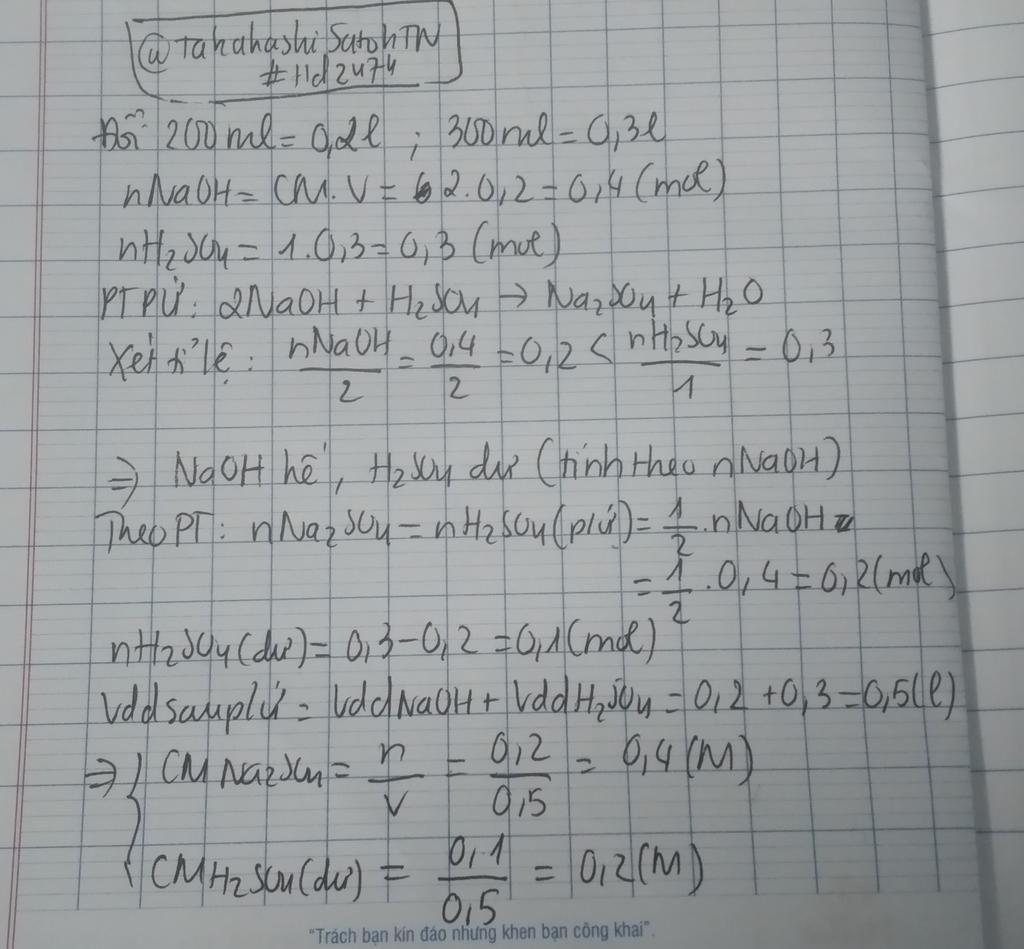 @TakahashiSatohTN
#Hd2474
Đổi 200ml = 0,2l ; 300ml = 0,3l
nNaOH = CM.V = 2.0,2 = 0,4 (mol)
nH₂SO₄ = 1.0,3 = 0,3 (mol)
PTPỨ: 2NaOH + H₂SO₄ → Na₂SO₄ + H₂O
Xét tỉ lệ: nNaOH/2 = 0,4/2 = 0,2 < nH₂SO₄/1 = 0,3
⇒ NaOH hế, H₂SO₄ dư (tính theo nNaOH)
Theo PT: nNa₂SO₄ = nH₂SO₄(pứ) = 1/2 . nNaOH
= 1/2 . 0,4 = 0,2 (mol)
nH₂SO₄(dư) = 0,3 - 0,2 = 0,1 (mol)
Vdd sau pứ = VddNaOH + VddH₂SO₄ = 0,2 + 0,3 = 0,5(l)
⇒ { CM Na₂SO₄ = n/V = 0,2/0,5 = 0,4 (M)
CM H₂SO₄(dư) = 0,1/0,5 = 0,2 (M)
"Trách bạn kín đáo nhưng khen bạn công khai".